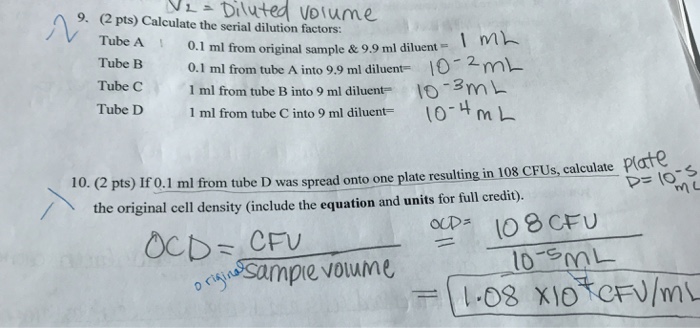 V2 = Diluted volume
9. (2 pts) Calculate the serial dilution factors:
Tube A 0.1 ml from original sample & 9.9 ml diluent= 1 mL
Tube B 0.1 ml from tube A into 9.9 ml diluent= 10-2 mL
Tube C 1 ml from tube B into 9 ml diluent= 10-3 mL
Tube D 1 ml from tube C into 9 ml diluent= 10-4 mL
10. (2 pts) If 0.1 ml from tube D was spread onto one plate resulting in 108 CFUs, calculate plate
the original cell density (include the equation and units for full credit). D= 10-5 mL
OCD= CFU OCD= 108 CFU
original sample volume 10-5 mL
= 1.08 x10 7 CFU/mL